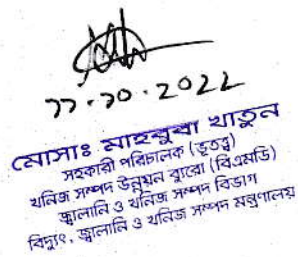 ১১.১০.২০২২
মোসাঃ মাহবুবা খাতুন
সহকারী পরিচালক (ভূতত্ত্ব)
খনিজ সম্পদ উন্নয়ন ব্যুরো (বিএমডি)
জ্বালানি ও খনিজ সম্পদ বিভাগ
বিদ্যুৎ, জ্বালানি ও খনিজ সম্পদ মন্ত্রণালয়